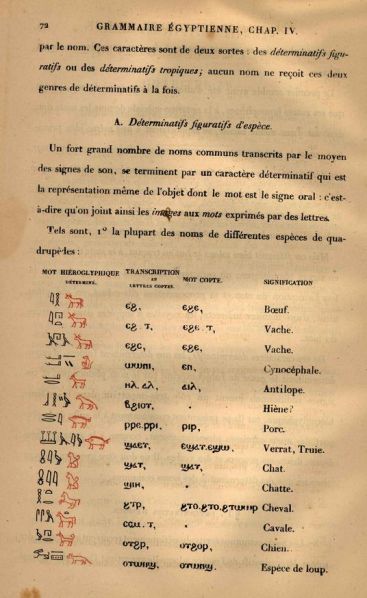 72 GRAMMAIRE ÉGYPTIENNE, CHAP. IV.
par le nom. Ces caractères sont de deux sortes : des déterminatifs figu-
ratifs ou des déterminatifs tropiques; aucun nom ne reçoit ces deux
genres de déterminatifs à la fois.
A. Déterminatifs figuratifs d'espèce.
Un fort grand nombre de noms communs transcrits par le moyen
des signes de son, se terminent par un caractère déterminatif qui est
la représentation même de l'objet dont le mot est le signe oral : c'est-
à-dire qu'on joint ainsi les images aux mots exprimés par des lettres.
Tels sont, 1° la plupart des noms de différentes espèces de qua-
drupèdes :
MOT HIÉROGLYPHIQUE TRANSCRIPTION MOT COPTE. SIGNIFICATION
DÉTERMINÉ. EN
LETTRES COPTES.
ⲉϩ, ⲉϩⲉ, Bœuf.
ⲉϩ. ⲧ, ⲉϩⲉ. ⲧ, Vache.
ⲉϩⲥ, ⲉϩⲉ, Vache.
ⲉⲛ, Cynocéphale.
Antilope.
Hiène?
ⲣⲓⲣ, Porc.
Verrat, Truie.
ϣⲁⲧ, ϣⲁⲧ, Chat.
Chatte.
ϩⲧⲣ, Cheval.
ⲥⲥⲙ. ⲧ, Cavale.
ⲟⲩϩⲣ, ⲟⲩϩⲟⲣ, Chien.
ⲟⲩⲱⲛϣ, ⲟⲩⲱⲛϣ, Espèce de loup.